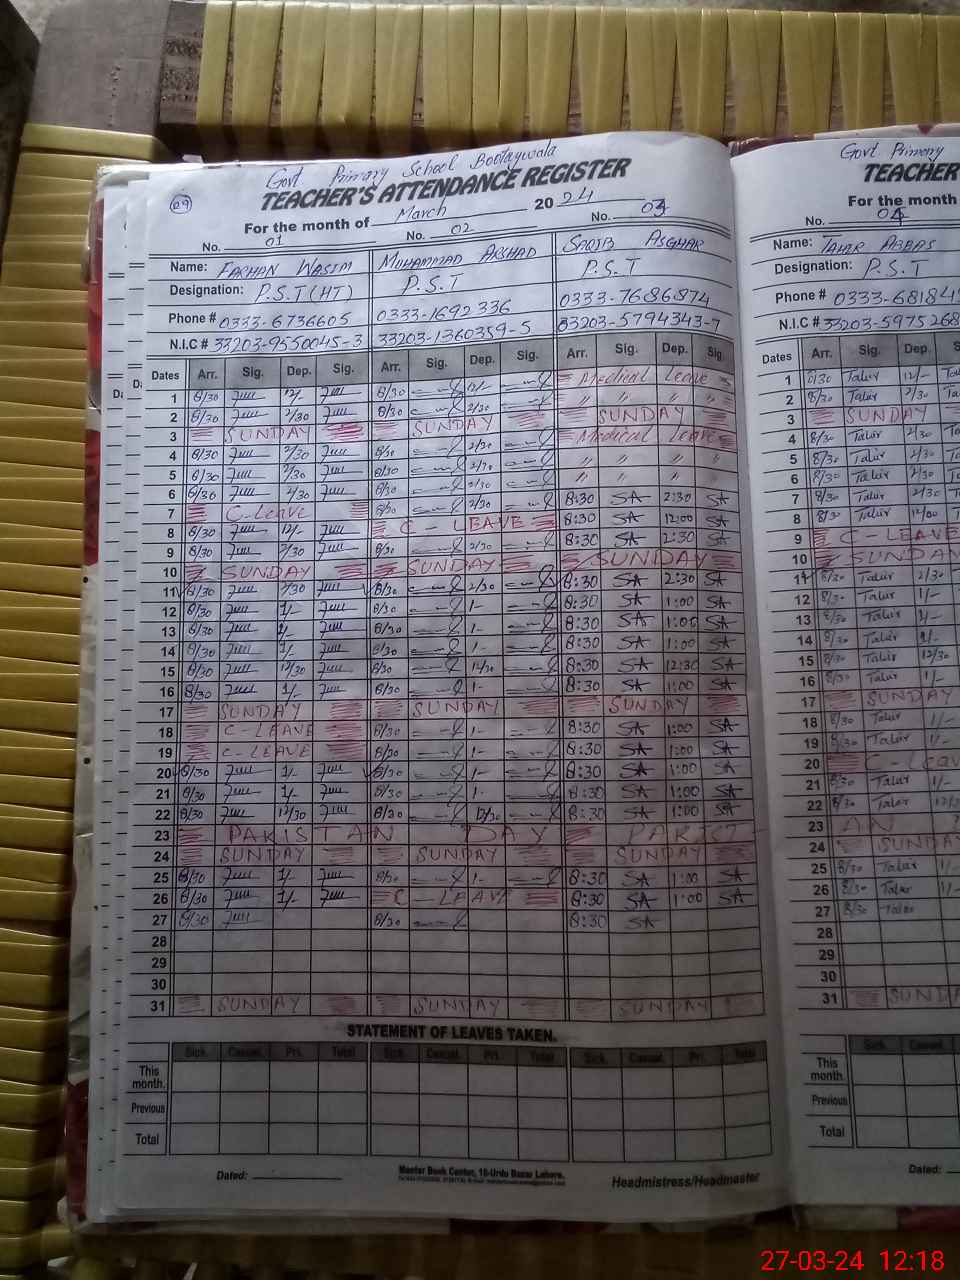 Govt Primary School Bootaywala
TEACHER'S ATTENDANCE REGISTER
29
For the month of March 2024
No. 01 No. 02 No. 03
Name: FARHAN WASIM MUHAMMAD ARSHAD SAQIB ASGHAR
Designation: P.S.T (HT) P.S.T P.S.T
Phone # 0333-6736605 0333-1692336 0333-7686874
N.I.C # 33203-9550045-3 33203-1360359-5 33203-5794343-7
Dates Arr. Sig. Dep. Sig. Arr. Sig. Dep. Sig. Arr. Sig. Dep. Sig.
1 8/30 12/- 8/30 12/- Medical Leave
2 8/30 2/30 8/30 2/30 " " "
3 SUNDAY SUNDAY SUNDAY
4 8/30 2/30 8/30 2/30 Medical Leave
5 8/30 2/30 8/30 2/30 " " "
6 8/30 2/30 8/30 2/30 " " "
7 C-Leave 8/30 2/30 8:30 SA 2:30 SA
8 8/30 12/- C-LEAVE 8:30 SA 12:00 SA
9 8/30 2/30 8/30 2/30 8:30 SA 2:30 SA
10 SUNDAY SUNDAY SUNDAY
11 8/30 2/30 8/30 2/30 8:30 SA 2:30 SA
12 8/30 1/- 8/30 1- 8:30 SA 1:00 SA
13 8/30 1/- 8/30 1- 8:30 SA 1:00 SA
14 8/30 1/- 8/30 1- 8:30 SA 1:00 SA
15 8/30 12/30 8/30 12/30 8:30 SA 12:30 SA
16 8/30 1/- 8/30 1- 8:30 SA 1:00 SA
17 SUNDAY SUNDAY SUNDAY
18 C-LEAVE 8/30 1- 8:30 SA 1:00 SA
19 C-LEAVE 8/30 1- 8:30 SA 1:00 SA
20 8/30 1/- 8/30 1- 8:30 SA 1:00 SA
21 8/30 1/- 8/30 1- 8:30 SA 1:00 SA
22 8/30 12/30 8/30 12/30 8:30 SA 1:00 SA
23 PAKISTAN DAY PAKIST
24 SUNDAY SUNDAY SUNDAY
25 8/30 1/- 8/30 1- 8:30 SA 1:00 SA
26 8/30 1/- C-LEAVE 8:30 SA 1:00 SA
27 8/30 8/30 8:30 SA
28
29
30
31 SUNDAY SUNDAY SUNDAY
STATEMENT OF LEAVES TAKEN.
Sick. Casual. Pri. Total Sick. Casual. Pri. Total Sick. Casual. Pri. Total
This month.
Previous
Total
Dated:
Master Book Center, 16-Urdu Bazar Lahore.
Headmistress/Headmaster
Govt Primary
TEACHER
For the month
No. 04
Name: TAHIR ABBAS
Designation: P.S.T
Phone # 0333-68184
N.I.C # 33203-5975268
Dates Arr. Sig. Dep. S
1 8/30 Tahir 12/- Ta
2 8/30 Tahir 2/30 Ta
3 SUNDAY
4 8/30 Tahir 2/30
5 8/30 Tahir 2/30
6 8/30 Tahir 2/30
7 8/30 Tahir 2/30
8 8/30 Tahir 12/00
9 C-LEAVE
10 SUNDAY
11 8/30 Tahir 2/30
12 8/30 Tahir 1/-
13 8/30 Tahir 1/-
14 8/30 Tahir 1/-
15 8/30 Tahir 12/30
16 8/30 Tahir 1/-
17 SUNDAY
18 8/30 Tahir 1/-
19 8/30 Tahir 1/-
20 C-Leav
21 8/30 Tahir 1/-
22 8/30 Tahir 12/
23 AN
24 SUNDAY
25 8/30 Tahir 1/-
26 8/30 Tahir 1/-
27 8/30 Tahir
28
29
30
31 SUNDA
Sick. Casual.
This month.
Previous
Total
Dated:
27-03-24 12:18